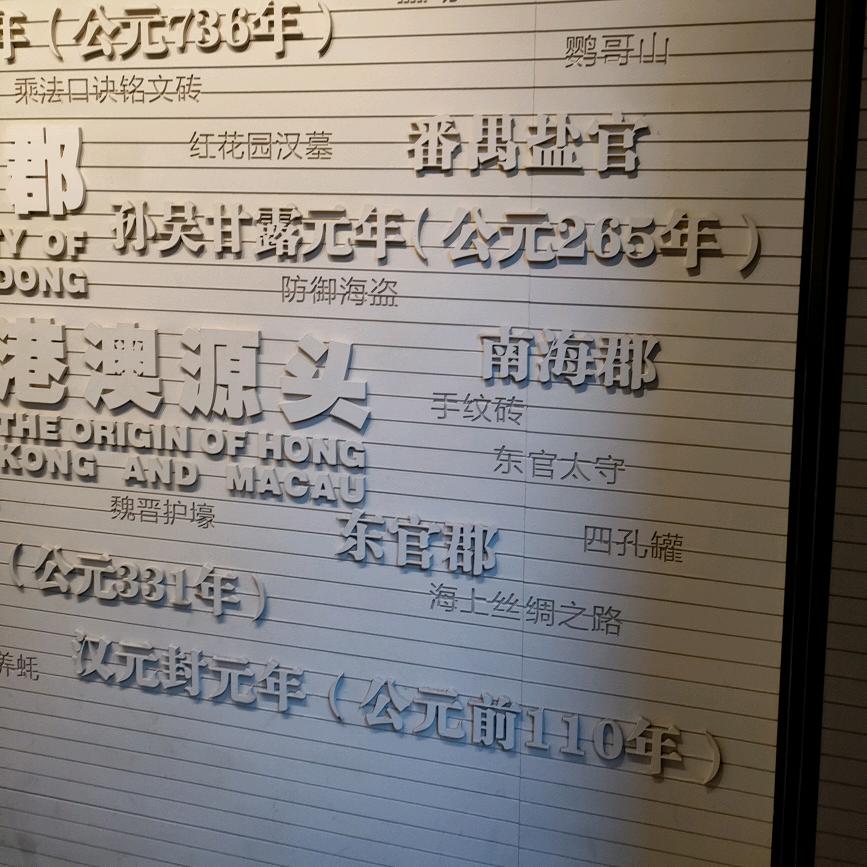 年（公元736年）
鹦哥山
乘法口诀铭文砖
郡
红花园汉墓
番禺盐官
Y OF
DONG
孙吴甘露元年（公元265年）
防御海盗
港澳源头
南海郡
手纹砖
THE ORIGIN OF HONG
KONG AND MACAU
东官太守
魏晋护壕
东官郡
四孔罐
（公元331年）
海上丝绸之路
养蚝
汉元封元年（公元前110年）